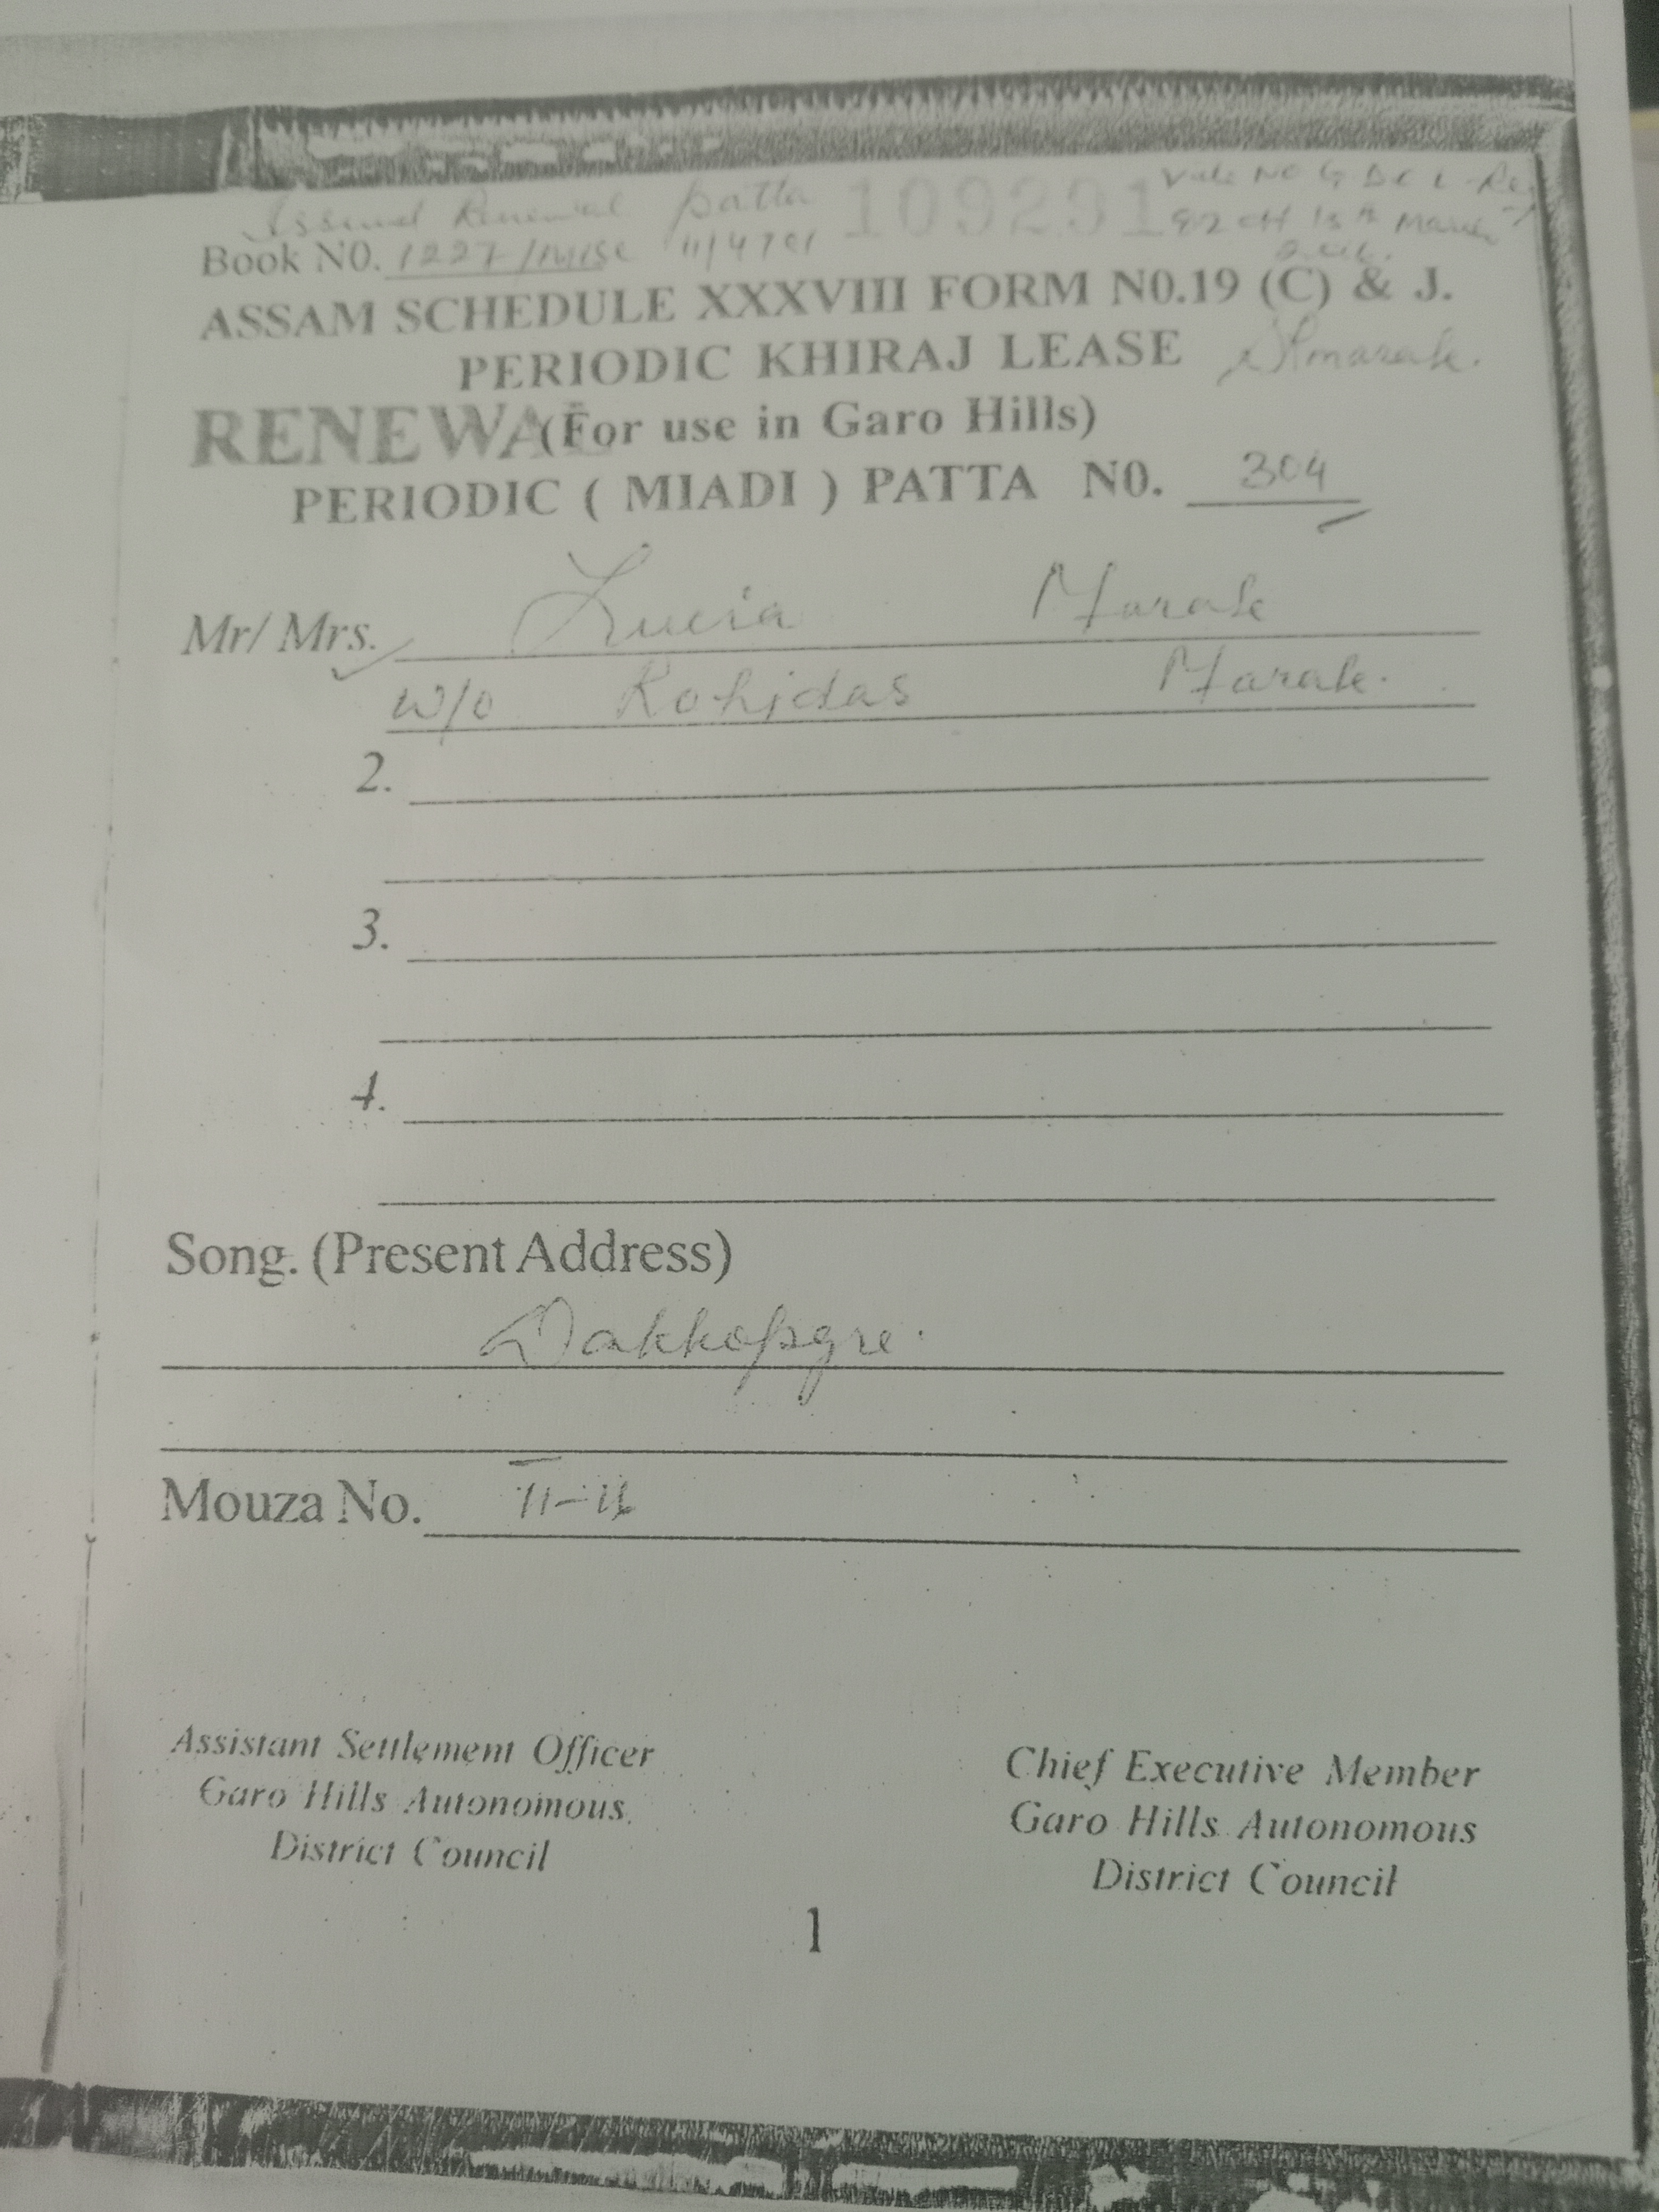 Issued Renewal patta 109291 Vide No G D C L. Rev
Book N0. 1227/Misc 11/4701 13th March
ASSAM SCHEDULE XXXVIII FORM N0.19 (C) & J.
PERIODIC KHIRAJ LEASE
RENEWAL (For use in Garo Hills)
PERIODIC ( MIADI ) PATTA N0. 304
Mr/ Mrs. Lucia Marak
W/o Rohidas Marak.
2.
3.
4.
Song. (Present Address)
Dakkopgre.
Mouza No. II-
Assistant Settlement Officer
Garo Hills Autonomous
District Council
Chief Executive Member
Garo Hills Autonomous
District Council
1